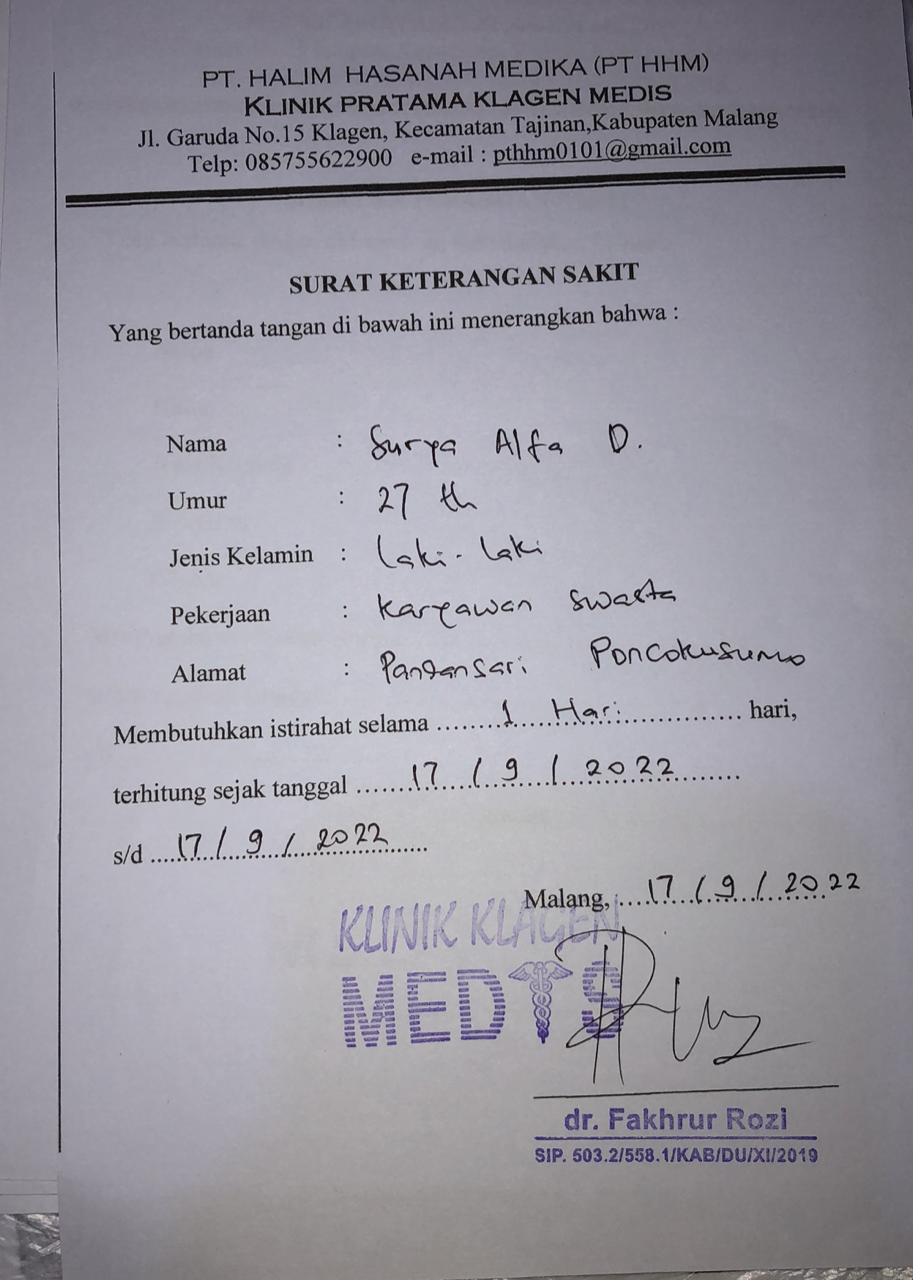 PT. HALIM HASANAH MEDIKA (PT HHM)
KLINIK PRATAMA KLAGEN MEDIS
Jl. Garuda No.15 Klagen, Kecamatan Tajinan,Kabupaten Malang
Telp: 085755622900 e-mail : pthhm0101@gmail.com
SURAT KETERANGAN SAKIT
Yang bertanda tangan di bawah ini menerangkan bahwa :
Nama : Surya Alfa D.
Umur : 27 th
Jenis Kelamin : Laki-laki
Pekerjaan : Karyawan Swasta
Alamat : Pandansari Poncokusumo
Membutuhkan istirahat selama ........1 Hari................ hari,
terhitung sejak tanggal ......17 / 9 / 2022........
s/d ...17 / 9 / 2022......
Malang, ....17 / 9 / 2022
KLINIK KLAGEN
MEDIS
dr. Fakhrur Rozi
SIP. 503.2/558.1/KAB/DU/XI/2019